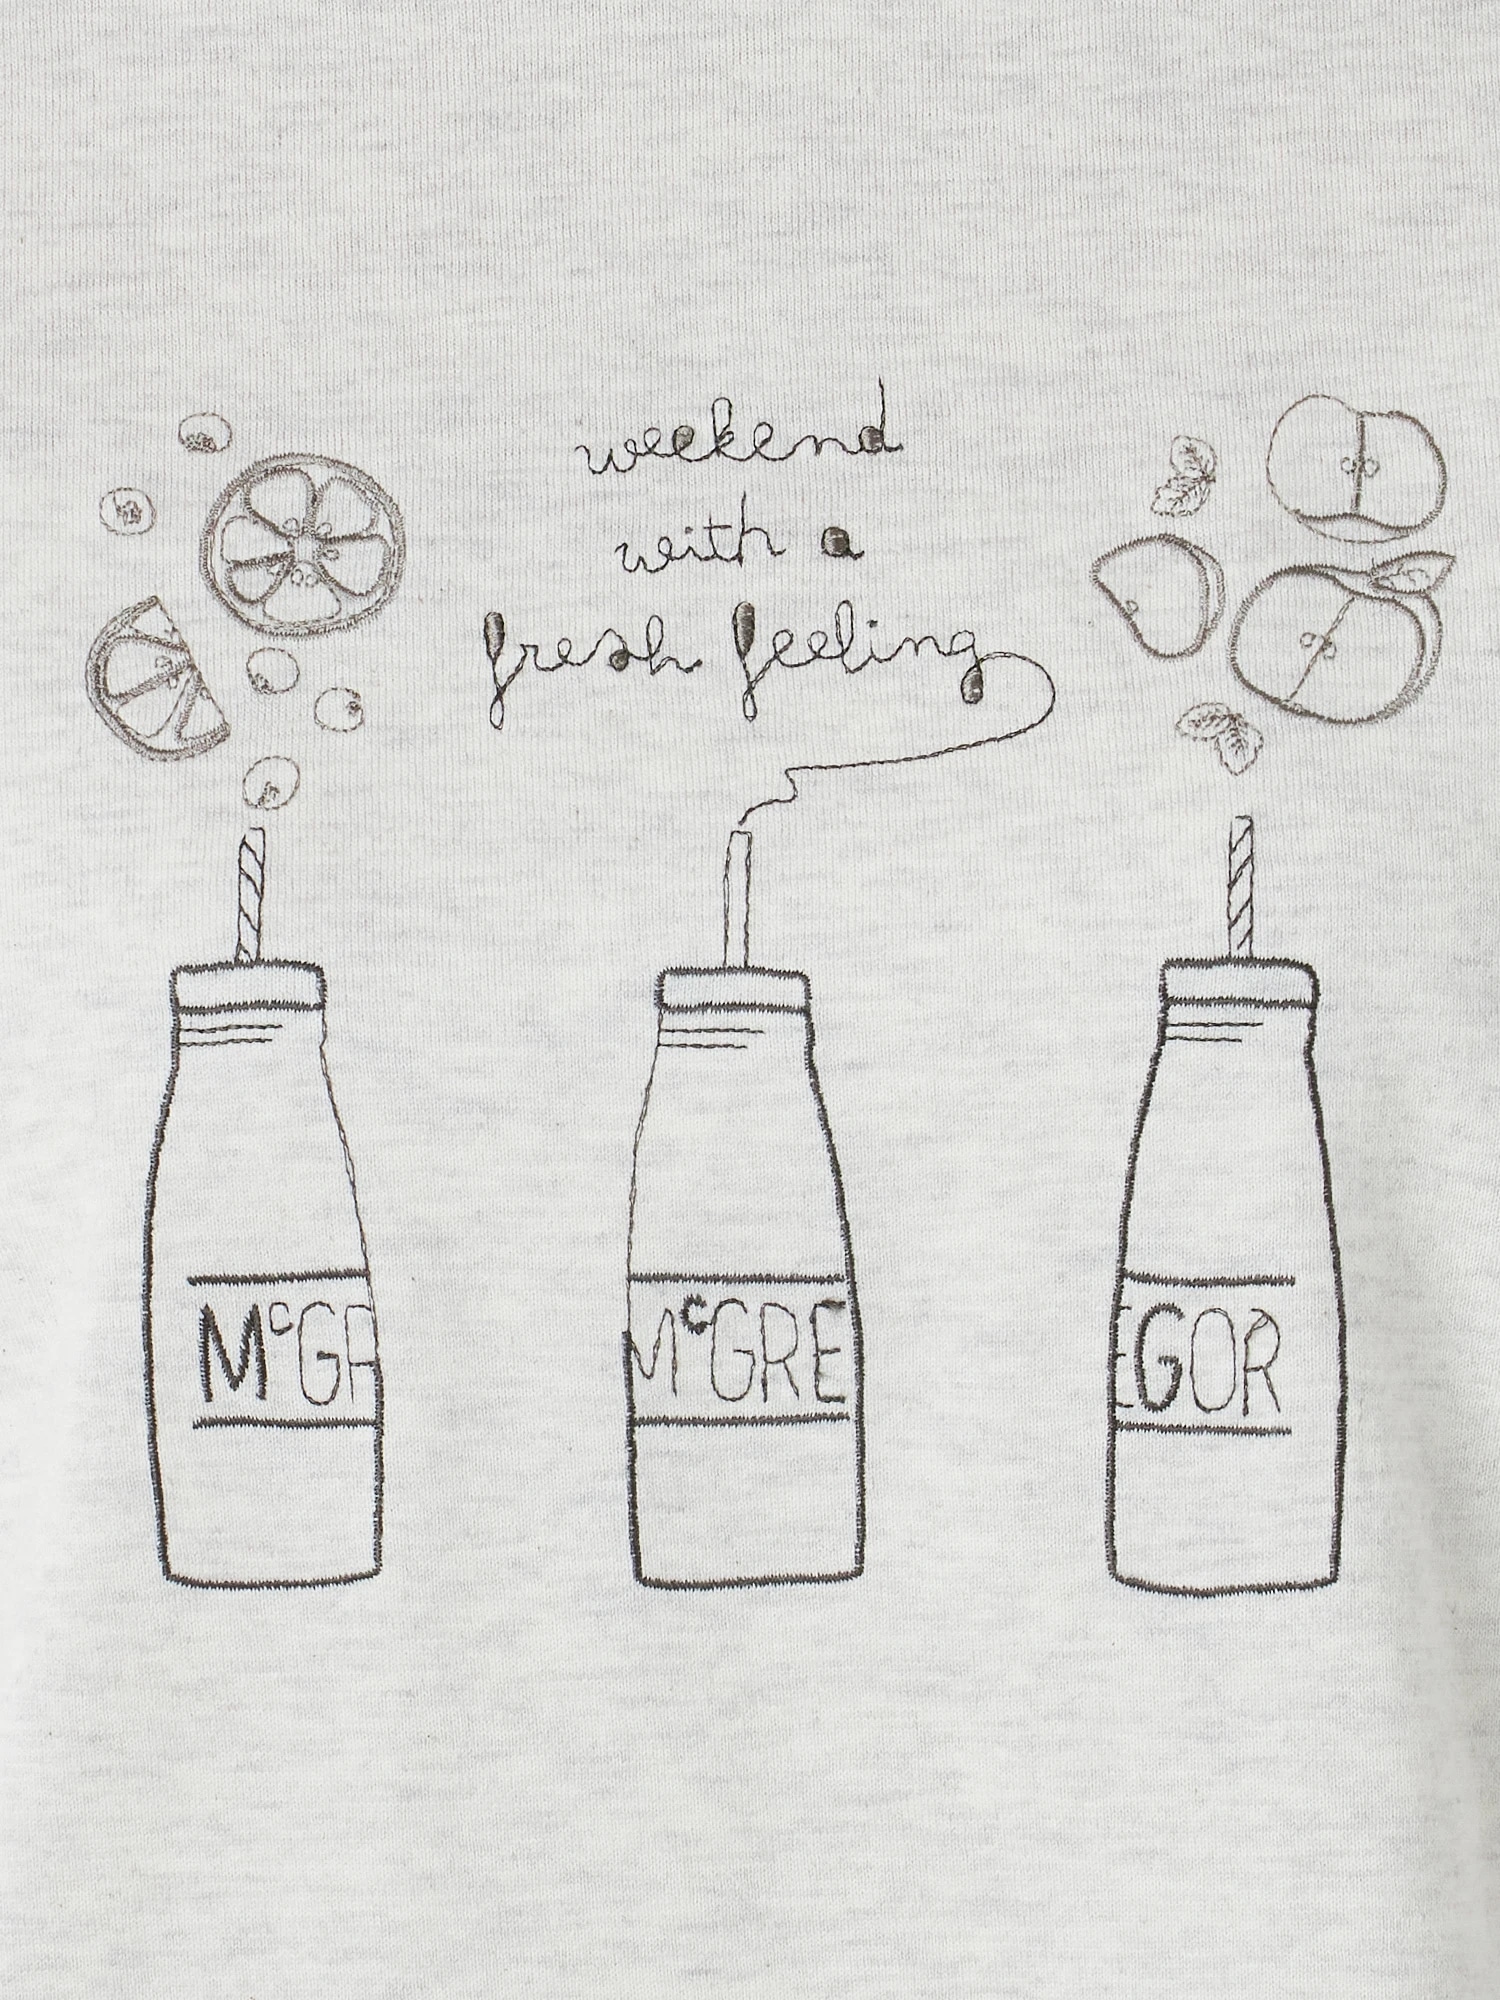 weekend
with a
fresh feeling
McGR
McGRE
EGOR